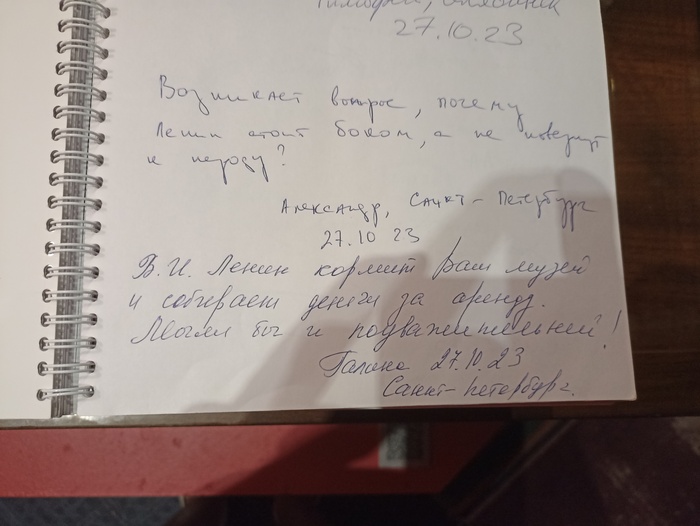 Тимофей,
27.10.23
Возникает вопрос, почему
Ленин стоит боком, а не повернут
к народу?
Александр, Санкт-Петербург
27.10 23
В.И. Ленин кормит Ваш музей
и собирает деньги за аренду.
Могли бы и поуважительней!
Галина 27.10.23
Санкт-Петербург.